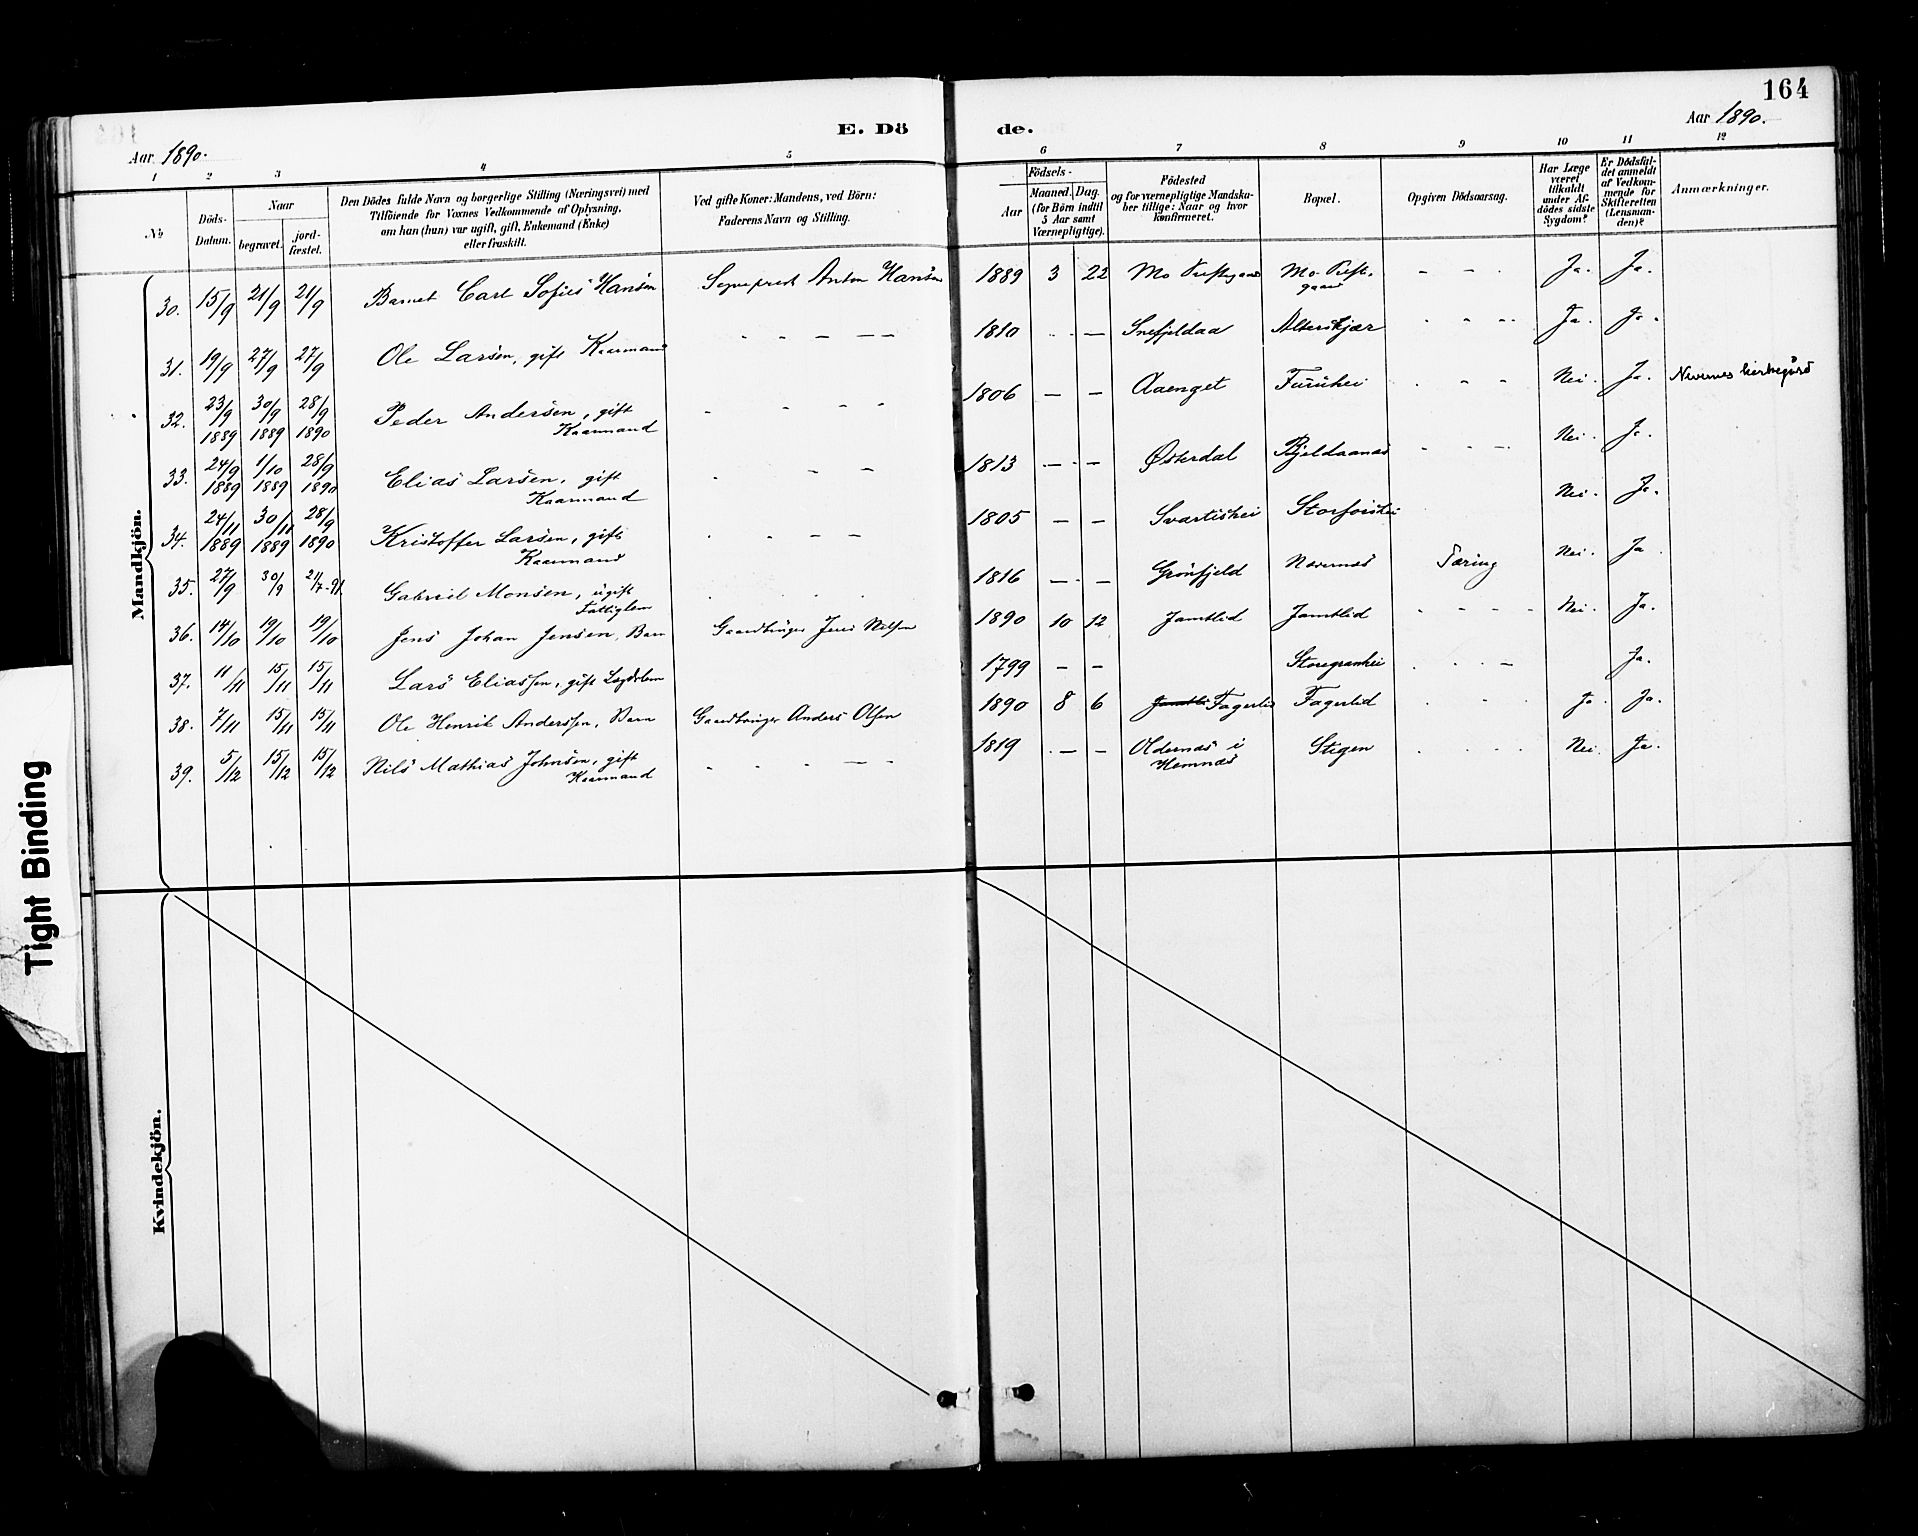 164
E. Döde.
Aar 1890.
Aar 1890.
1 2 3 4 5 6 7 8 9 10 11 12
No
Döds-Datum.
Naar
begravet.
jord-fæstet.
Den Dödes fulde Navn og borgerlige Stilling (Næringsvei) med
Tilföiende for Voxnes Vedkommende af Oplysning,
om han (hun) var ugift, gift, Enkemand (Enke)
eller fraskilt.
Ved gifte Koner: Mandens, ved Börn:
Faderens Navn og Stilling.
Födsels-
Aar
Maaned. Dag.
(for Börn indtil
5 Aar samt
Værnepligtige).
Födested
og for værnepligtige Mandska-
ber tillige: Naar og hvor
konfirmeret.
Bopæl.
Opgiven Dödsaarsag.
Har Læge
været
tilkaldt
under Af-
dödes sidste
Sygdom?
Er Dödsfal-
det anmeldt
af Vedkom-
mende for
Skifteretten
(Lensman-
den)?
Anmærkninger.
Mandkjön.
30. 15/9 21/9 21/9 Barnet Carl Sofus Hansen Sogneprest Anton Hansen 1889 3 22 Mo Prestegaard Mo Prest- - - - Ja. Ja.
gaard
31. 19/9 27/9 27/9 Ole Larsen, gift Kaarmand - - - - - 1810 - - Snefjeldaa Alterskjær - - - Ja. Ja.
32. 23/9 1889 30/9 1889 28/9 1890 Peder Andersen, gift - - - - 1806 - - Aaenget Furuhei - - - Nei. Ja. Nevernes kirkegård
Kaarmand
33. 24/9 1889 1/10 1889 28/9 1890 Elias Larsen, gift - - - 1813 - - Østerdal Bjeldaanæs - - - Nei. Ja.
Kaarmand
34. 24/11 1889 30/11 1889 28/9 1890 Kristoffer Larsen, gift - - - - 1805 - - Svartishei Storforshei Nei. Ja.
Kaarmand
35. 27/9 30/9 21/7-91 Gabriel Monsen, ugift - - - 1816 - - Grönfjeld Nævernæs Tæring Nei. Ja
Fattiglem
36. 14/10 19/10 19/10 Jens Johan Jensen, Barn Gaardbruger Jens Nilsen 1890 10 12 Jamtlid Jamtlid - - - - Nei. Ja.
37. 11/11 15/11 15/11 Lars Eliassen, gift Lægdslem 1799 - - Storegranhei - - - - Ja.
38. 7/11 15/11 15/11 Ole Henrik Anderssen, Barn Gaardbruger Anders Olsen 1890 8 6 Jamtli Fagerlid Fagerlid - - - Ja. Ja.
39. 5/12 15/12 15/12 Nils Mathias Johnsen, gift - - - - - 1819 - - Oldernæs i Stigen - - - - Nei. Ja.
Kaarmand Hemnæs
Kvindekjön.
Tight Binding